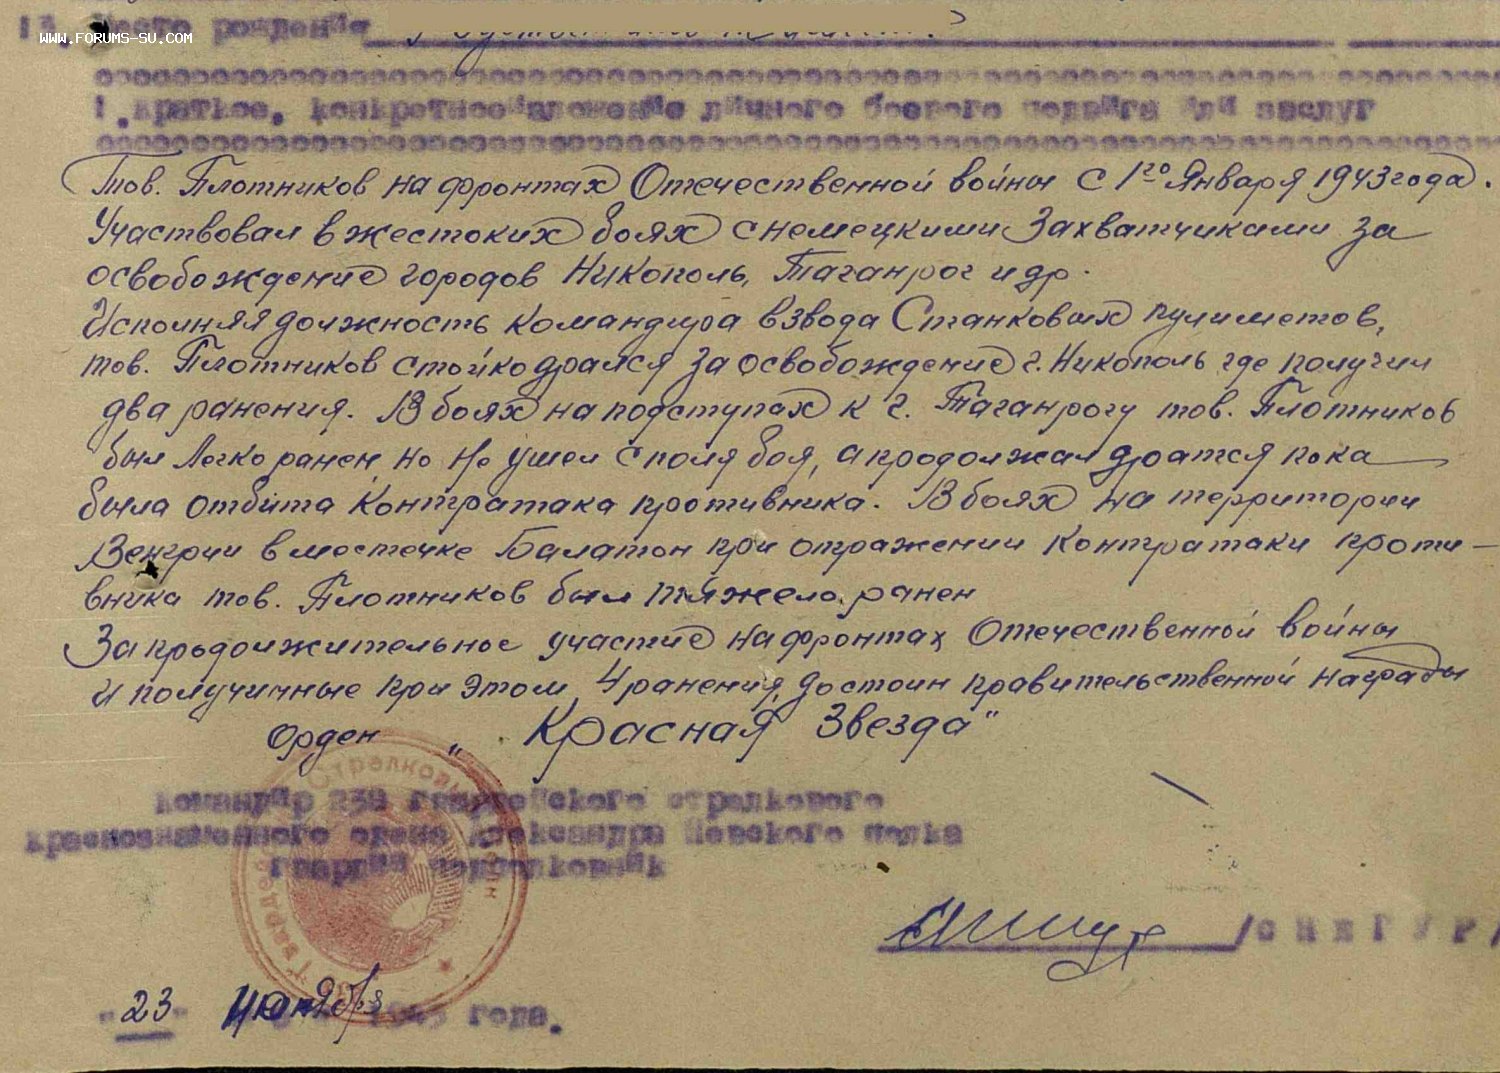 13. Место рождения
WWW.FORUMS-SU.COM
1. Краткое, конкретное изложение личного боевого подвига или заслуг
Тов. Плотников на фронтах Отечественной войны с 1го Января 1943 года.
Участвовал в жестоких боях с немецкими захватчиками за
освобождение городов Никополь, Таганрог и др.
Исполняя должность командира взвода Станковых пулиметов,
тов. Плотников стойко дрался за освобождение г. Никополь где получил
два ранения. В боях на подступах к г. Таганрогу тов. Плотников
был легко ранен но не ушел с поля боя, а продолжал дратся пока
была отбита контратака противника. В боях на территории
Венгрии в местечке Балатон при отражении контратаки проти-
вника тов. Плотников был тяжело ранен
За продолжительное участие на фронтах Отечественной войны
и получинные при этом 4 ранения, достоин правительственной награды
Орден „Красная Звезда"
Командир 238 гвардейского стрелкового
краснознаменного ордена Александра Невского полка
гвардии подполковник
/СНЕГУР/
"23" 1945 года.